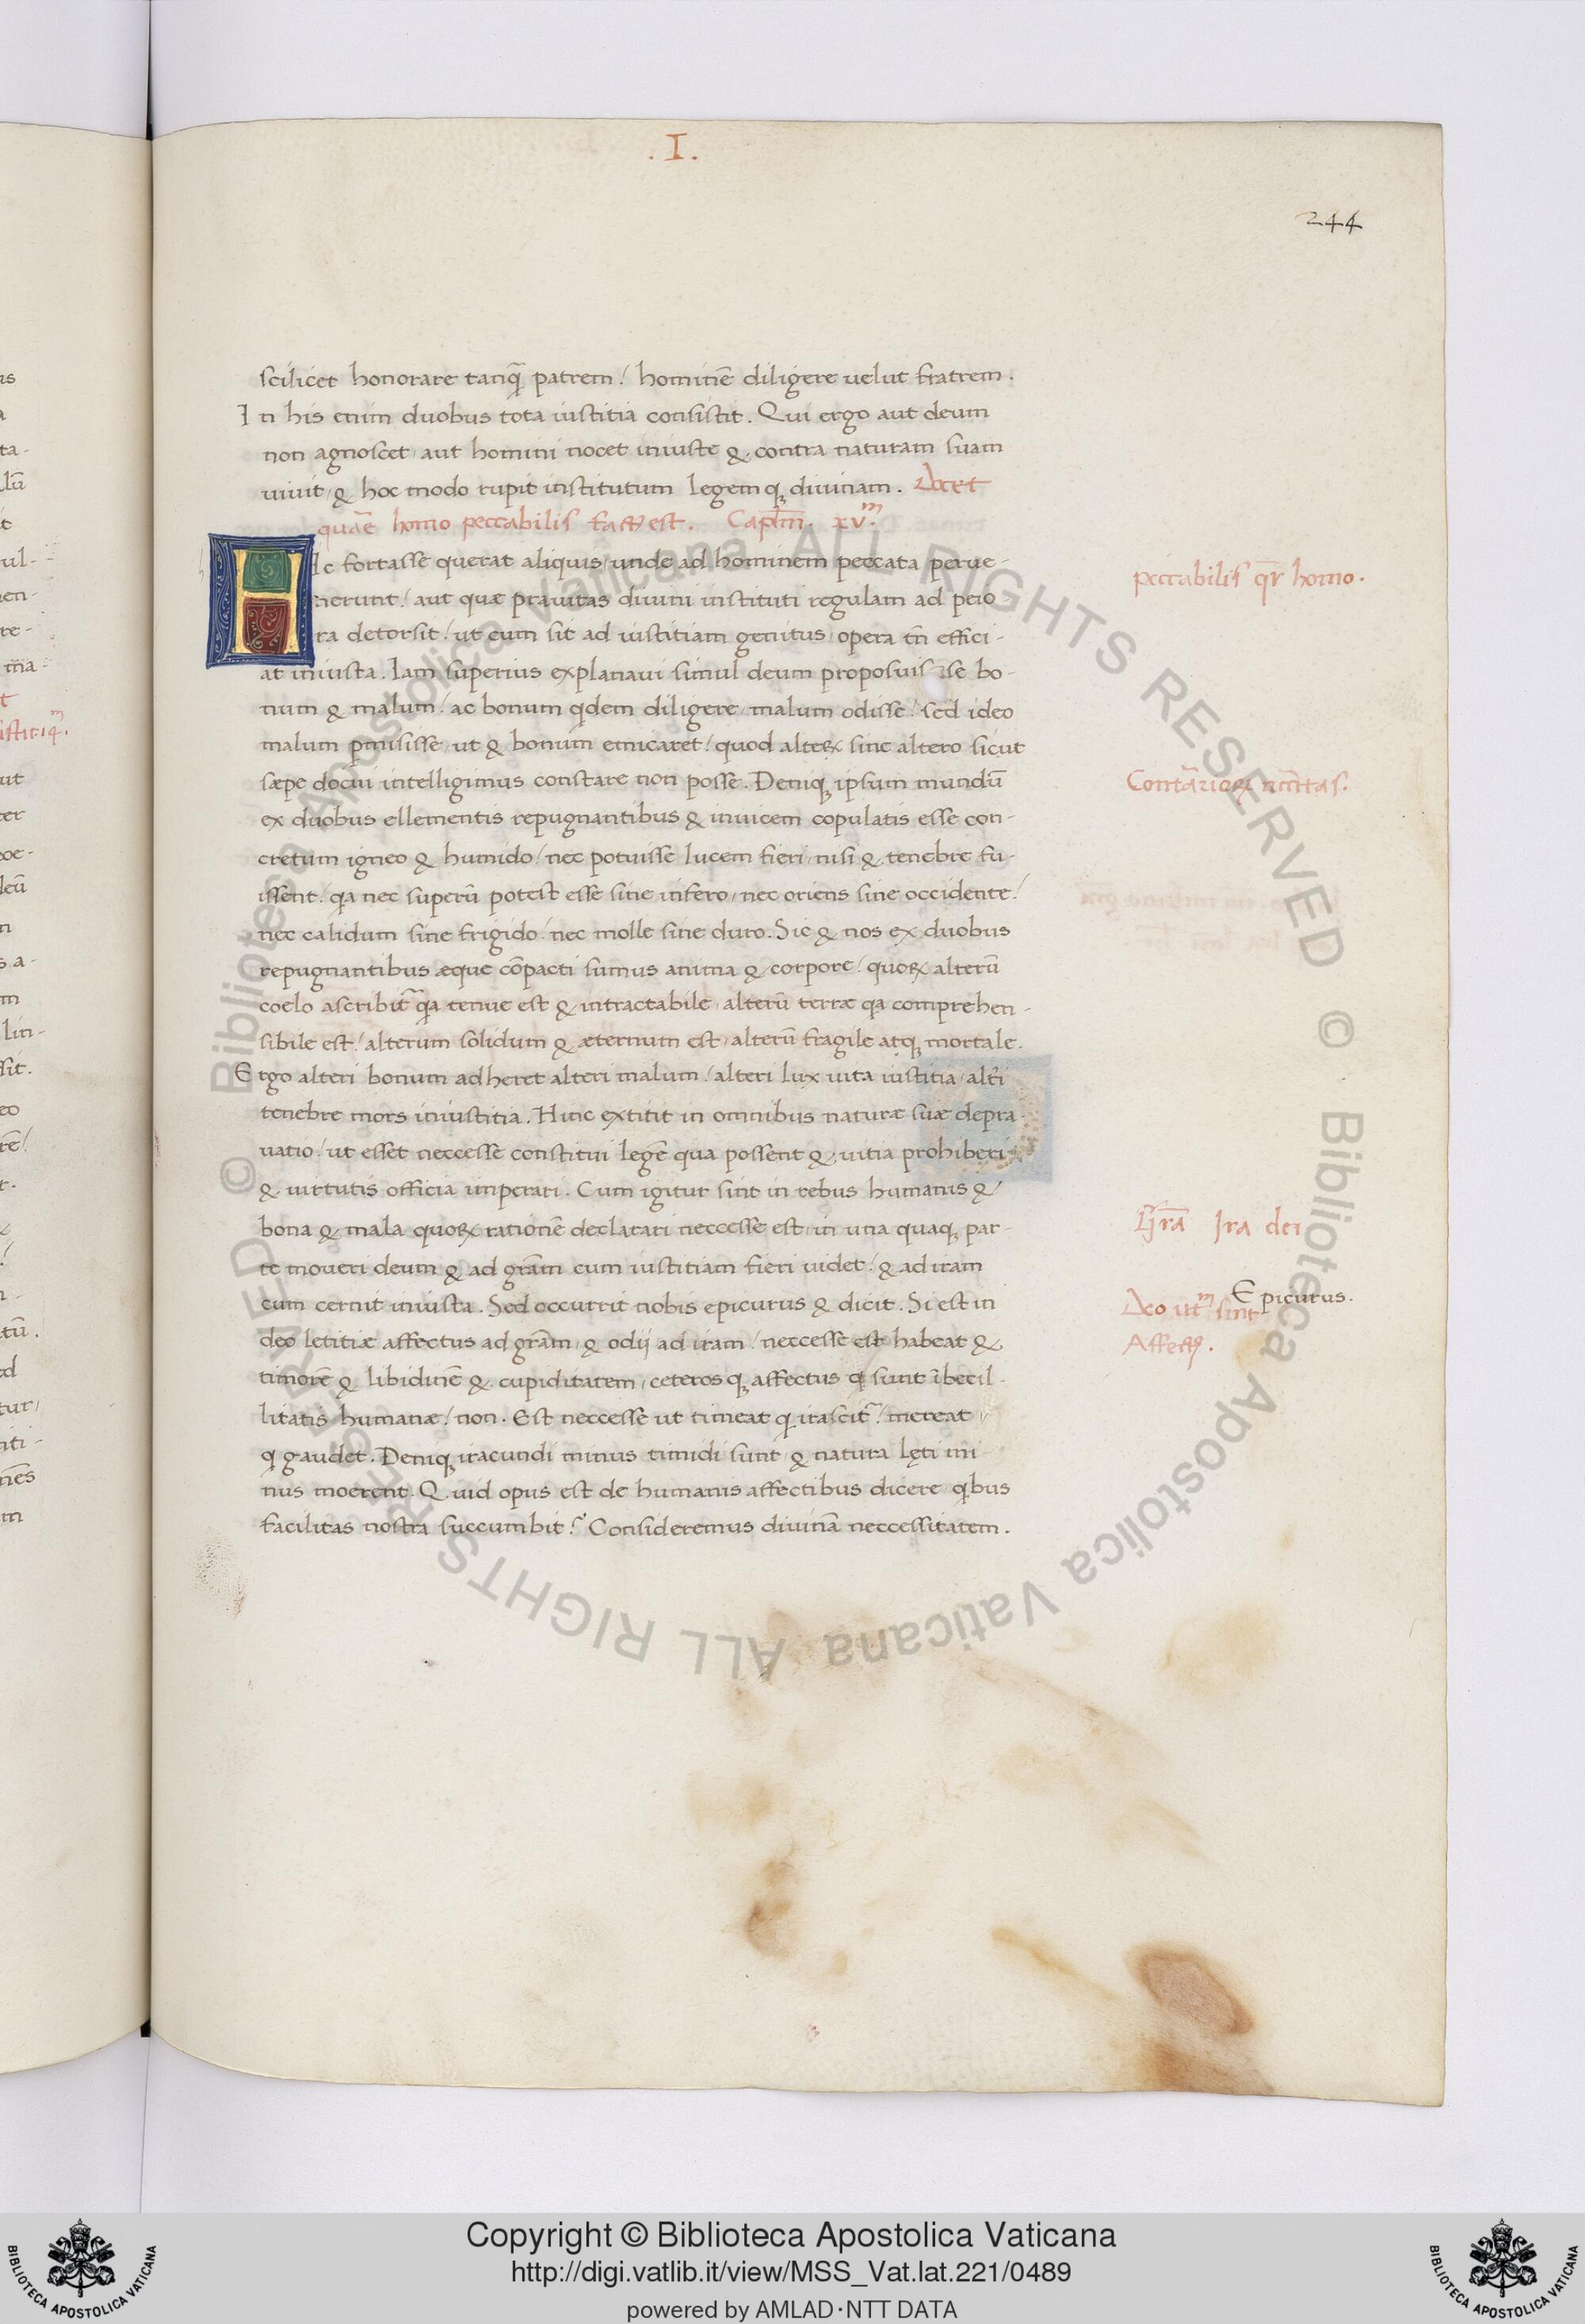 .I.
244
scilicet honorare tanq̄ patrem / hominē diligere uelut fratrem .
In his enim duobus tota iustitia consistit . Qui ergo aut deum
non agnoscet aut homini nocet iniuste & contra naturam suam
uiuit & hoc modo rupit institutum legemq; diuinam . Docet
quare homo peccabilis fact9 est . Capl̄m . xv.m
HIc fortasse querat aliquis unde ad hominem peccata perue-
nerunt / aut quæ prauitas diuini instituti regulam ad peio
ra detorsit / ut cum sit ad iustitiam genitus opera tn̄ effici-
at iniusta . Iam superius explanaui simul deum proposuisse bo-
num & malum / ac bonum qdem diligere malum odisse / sed ideo
malum pmisisse ut & bonum emicaret / quod alterꝝ sine altero sicut
sæpe docui intelligimus constare non posse . Deniq; ipsum mundū
ex duobus ellementis repugnantibus & inuicem copulatis esse con-
cretum igneo & humido / nec potuisse lucem fieri nisi & tenebre fu-
issent / qa nec superū potest esse sine infero nec oriens sine occidente /
nec calidum sine frigido / nec molle sine duro . Sic & nos ex duobus
repugnantibus æque cōpacti sumus anima & corpore / quoꝝ alterū
coelo ascribit̄ qa tenue est & intractabile alterū terræ qa comprehen-
sibile est / alterum solidum & æternum est alterū fragile atq; mortale .
Ergo alteri bonum adheret alteri malum / alteri lux uita iustitia alt̄i
tenebre mors iniustitia . Hinc extitit in omnibus naturæ suæ depra-
uatio / ut esset neccesse constitui legē qua possent & uitia prohiberi
& uirtutis officia imperari . Cum igitur sint in rebus humanis &
bona & mala quoꝝ rationē declarari neccesse est in una quaq; par-
te moueri deum & ad grām cum iustitiam fieri uidet / & ad iram
cum cernit iniusta . Sed occurrit nobis epicurus & dicit . Si est in
deo letitiæ affectus ad grām & odij ad iram / neccesse est habeat &
timorē & libidinē & cupiditatem ceterosq; affectus q sunt ībecil-
litatis humanæ / non . Est neccesse ut timeat q irascit̄ / mereat
q gaudet . Deniq; iracundi minus timidi sunt & natura lęti mi-
nus moerent . Quid opus est de humanis affectibus dicere qbus
facilitas nostra succumbit ? Consideremus diuinā neccessitatem .
peccabilis qr̄ homo .
Contrarioꝝ nc̄ītas .
Grā Ira dei
Epicurus .
Deo ut.m sint
Affect9 .
Copyright © Biblioteca Apostolica Vaticana
http://digi.vatlib.it/view/MSS_Vat.lat.221/0489
powered by AMLAD·NTT DATA
BIBLIOTECA APOSTOLICA VATICANA
BIBLIOTECA APOSTOLICA VATICANA
© Biblioteca Apostolica Vaticana ALL RIGHTS RESERVED
© Biblioteca Apostolica Vaticana ALL RIGHTS RESERVED